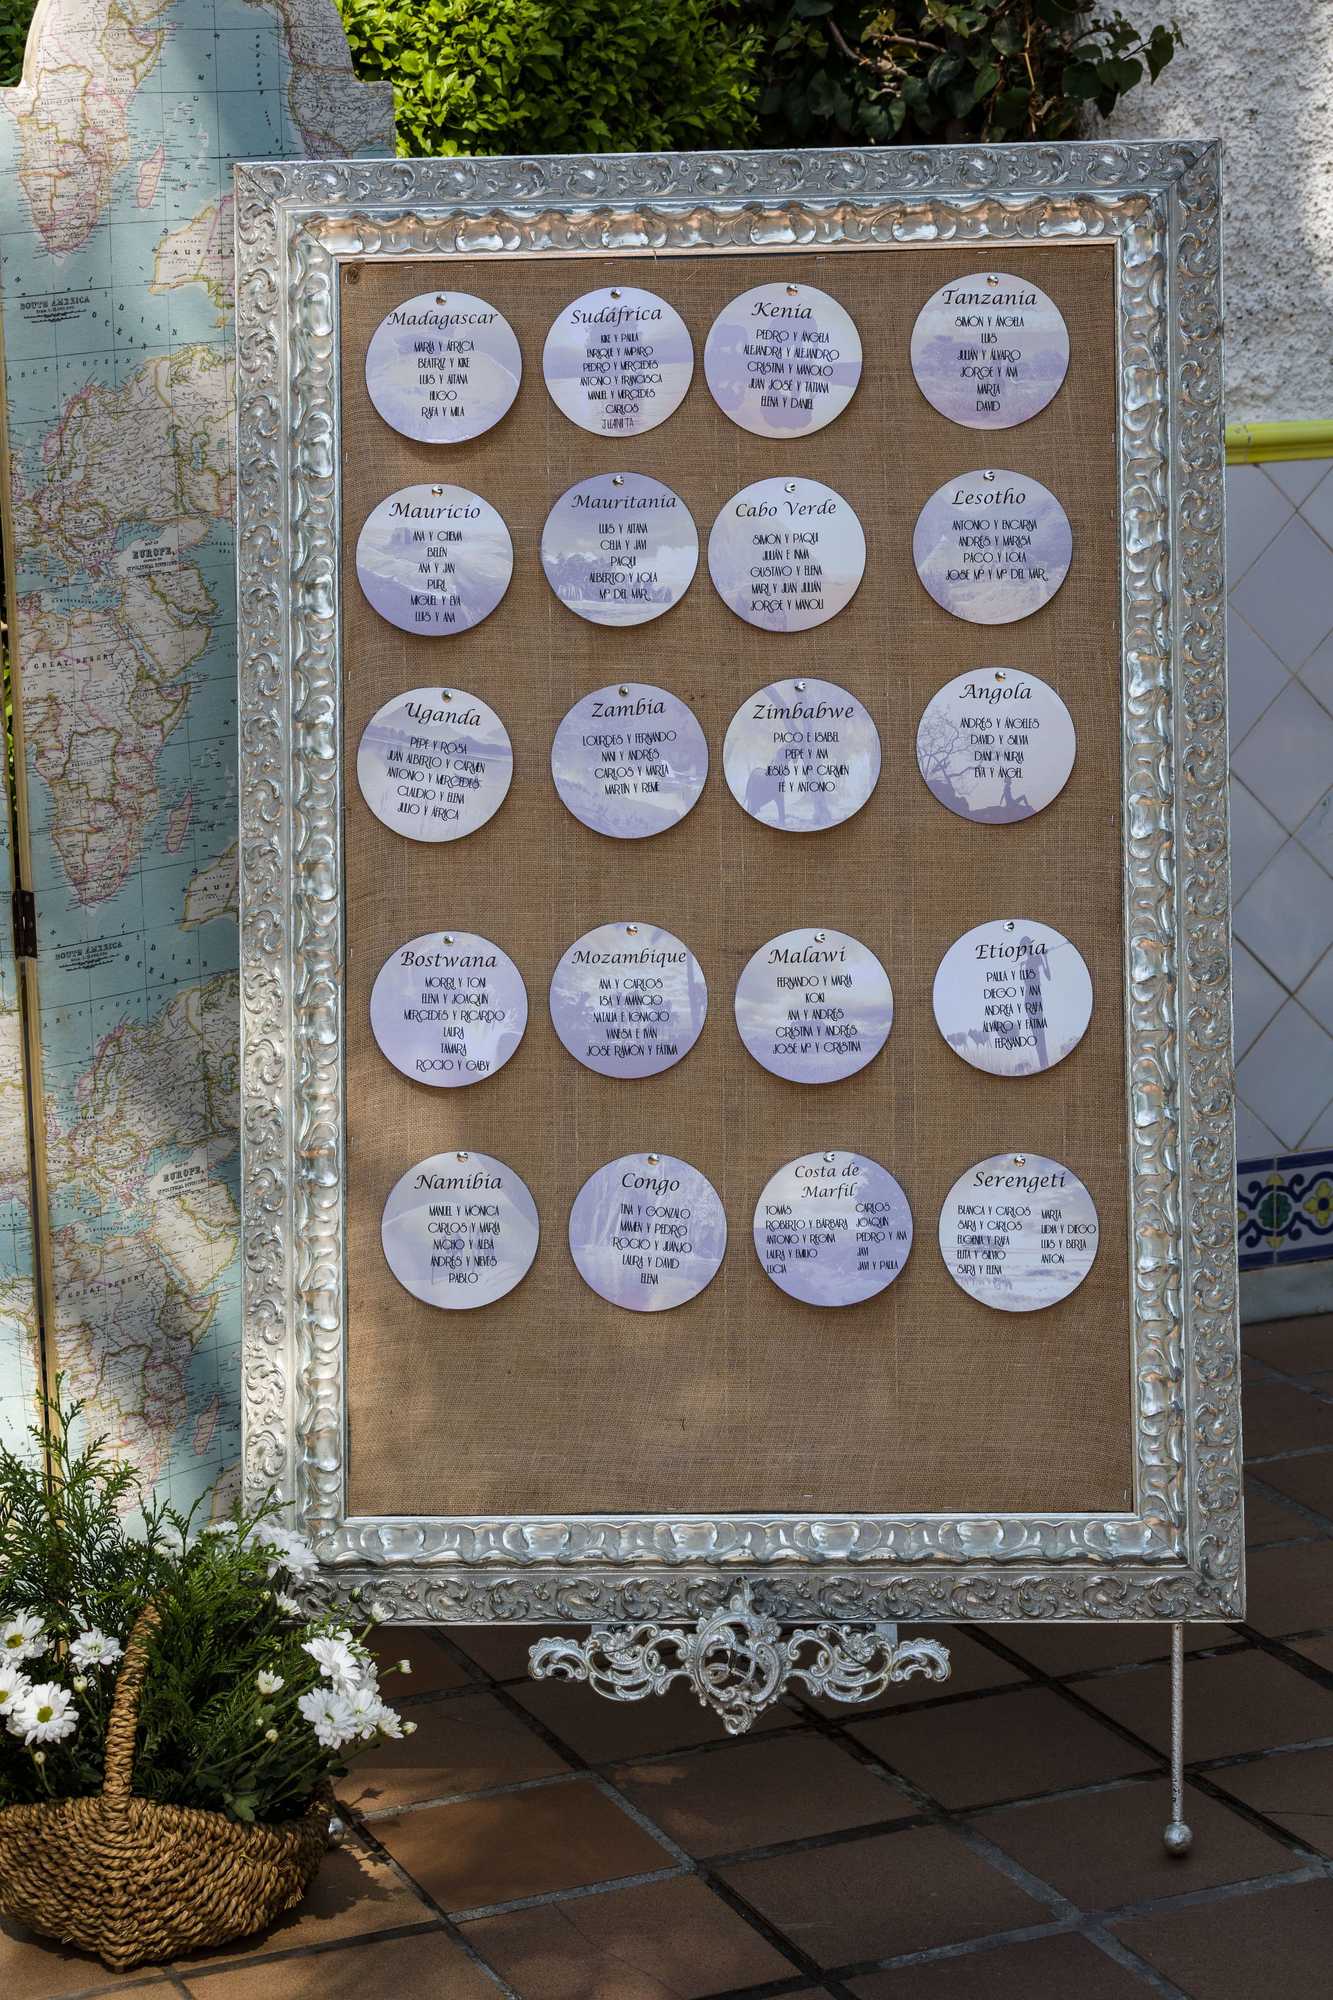 Madagascar
MARÍA Y ÁFRICA
BEATRIZ Y KIKE
LUIS Y AITANA
HUGO
RAFA Y MILA
Sudáfrica
KIKE Y PAULA
ENRIQUE Y AMPARO
PEDRO Y MERCEDES
ANTONIO Y FRANCISCA
MANUEL Y MERCEDES
CARLOS
JUANITA
Kenia
PEDRO Y ÁNGELA
ALEJANDRA Y ALEJANDRO
CRISTINA Y MANOLO
JUAN JOSÉ Y TATIANA
ELENA Y DANIEL
Tanzania
SIMON Y ÁNGELA
LUIS
JULIÁN Y ÁLVARO
JORGE Y ANA
MARTA
DAVID
Mauricio
ANA Y CHEMA
BELÉN
ANA Y JAN
PURI
MIGUEL Y EVA
LUIS Y ANA
Mauritania
LUIS Y AITANA
CELIA Y JAVI
PAQUI
ALBERTO Y LOLA
Mª DEL MAR
Cabo Verde
SIMON Y PAQUI
JULIÁN E INMA
GUSTAVO Y ELENA
MARI Y JUAN JULIÁN
JORGE Y MANOLI
Lesotho
ANTONIO Y ENCARNA
ANDRÉS Y MARISA
PACO Y LOLA
JOSE Mª Y Mª DEL MAR
Uganda
PEPE Y ROSA
JUAN ALBERTO Y CARMEN
ANTONIO Y MERCEDES
CLAUDIO Y ELENA
JULIO Y ÁFRICA
Zambia
LOURDES Y FERNANDO
NANI Y ANDRÉS
CARLOS Y MARTA
MARTIN Y REME
Zimbabwe
PACO E ISABEL
PEPE Y ANA
JESÚS Y Mª CARMEN
FÉ Y ANTONIO
Angola
ANDRÉS Y ÁNGELES
DAVID Y SILVIA
DANI Y NURIA
EVA Y ÁNGEL
Bostwana
MORRI Y TONI
ELENA Y JOAQUIN
MERCEDES Y RICARDO
LAURA
TAMARA
ROCIO Y GABY
Mozambique
ANA Y CARLOS
ISA Y AMANCIO
NATALIA E IGNACIO
VANESA E IVÁN
JOSE RAMÓN Y FÁTIMA
Malawi
FERNANDO Y MARÍA
KOKI
ANA Y ANDRÉS
CRISTINA Y ANDRÉS
JOSE Mª Y CRISTINA
Etiopia
PAULA Y LUIS
DIEGO Y ANA
ANDREA Y RAFA
ÁLVARO Y FÁTIMA
FERNANDO
Namibia
MANUEL Y MÓNICA
CARLOS Y MARÍA
NACHO Y ALBA
ANDRÉS Y NIEVES
PABLO
Congo
TINA Y GONZALO
MAMEN Y PEDRO
ROCIO Y JUANJO
LAURA Y DAVID
ELENA
Costa de
Marfil
TOMÁS
ROBERTO Y BÁRBARA
ANTONIO Y REGINA
LAURA Y EMILIO
LUCIA
CARLOS
JOAQUIN
PEDRO Y ANA
JAVI
JAVI Y PAULA
Serengeti
BLANCA Y CARLOS
SARA Y CARLOS
EUGENIA Y RAFA
ELITA Y SILVIO
SARA Y ELENA
MARTA
LIDIA Y DIEGO
LUIS Y BERTA
ANTON
SOUTH AMERICA
ARCTIC OCEAN
MAP OF
EUROPE,
GREAT DESERT
SOUTH AMERICA
ARCTIC OCEAN
MAP OF
EUROPE,
GREAT DESERT